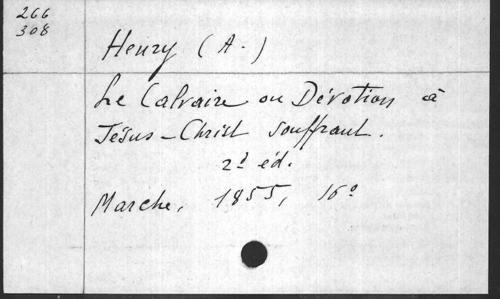 266
308
Henry (A.)
Le Calvaire ou Dévotion à
Jésus-Christ souffrant.
2d éd.
Marche, 1855, 16º